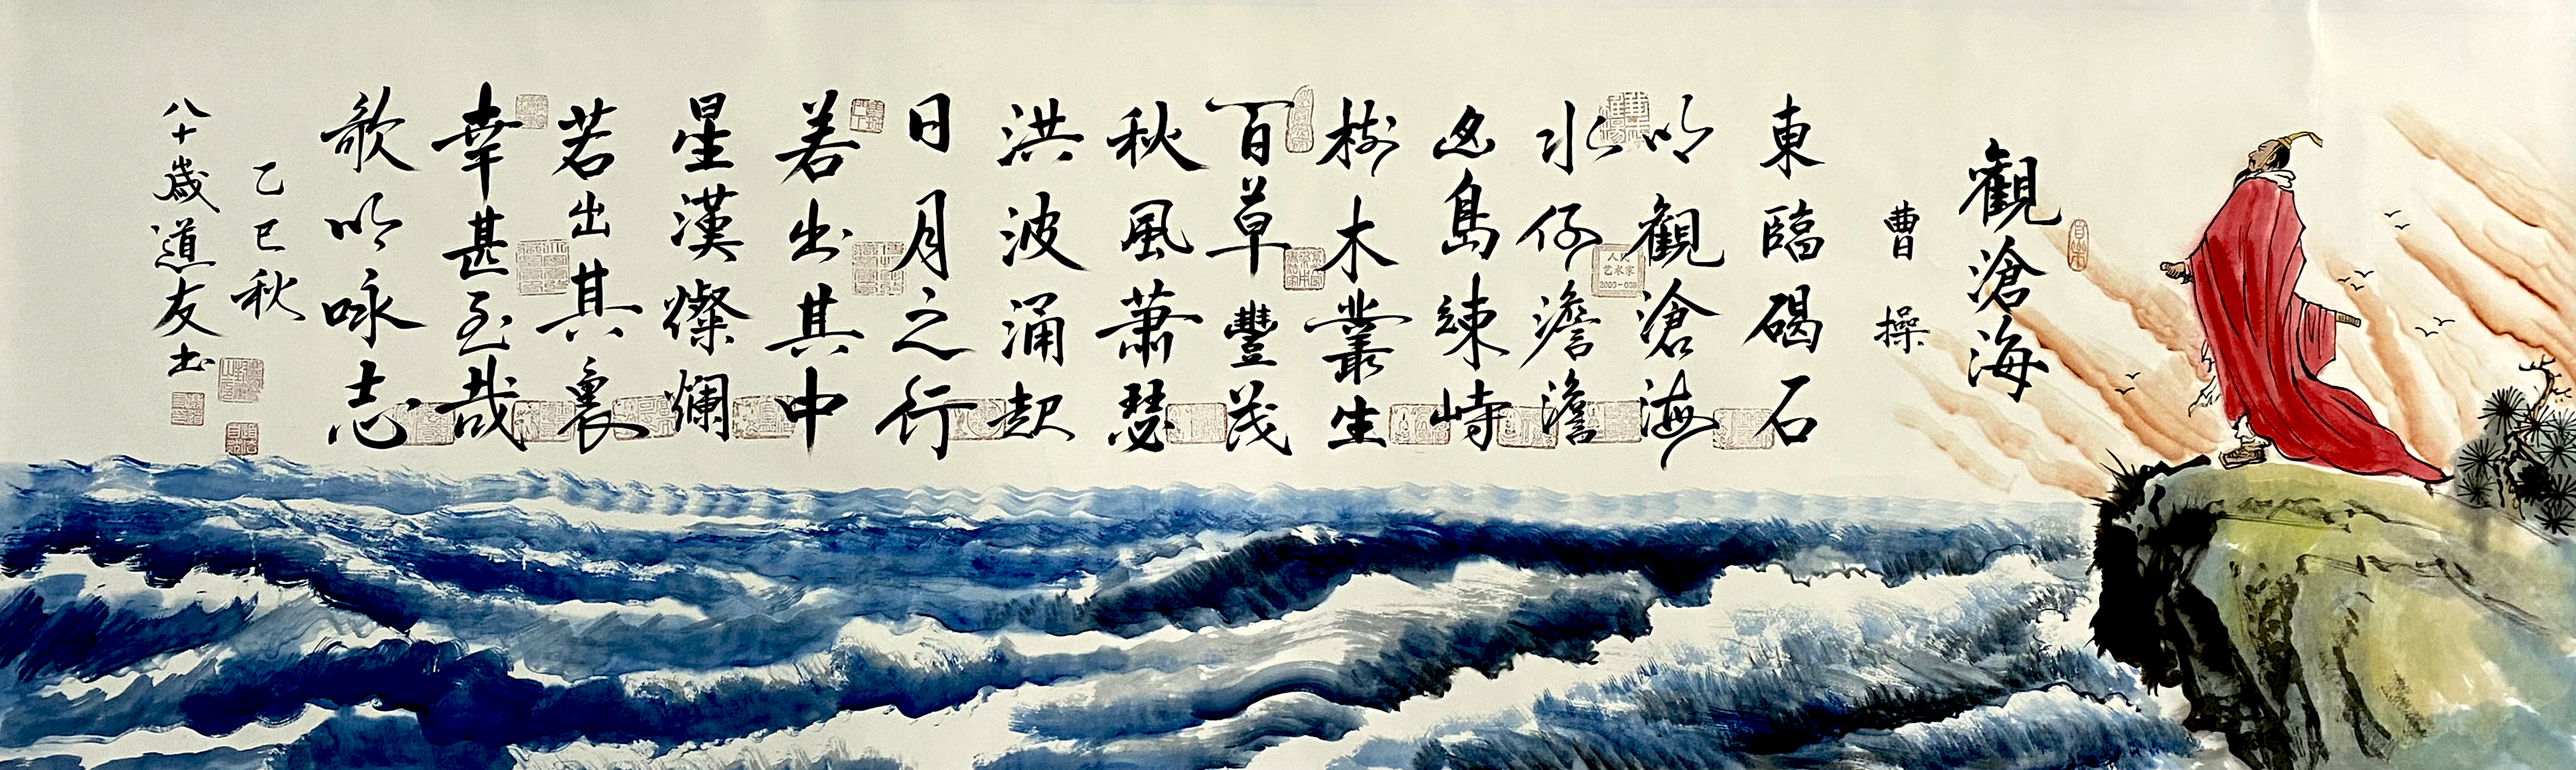 觀滄海
曹操
東臨碣石
以觀滄海
水何澹澹
山島竦峙
樹木叢生
百草豐茂
秋風蕭瑟
洪波涌起
日月之行
若出其中
星漢燦爛
若出其裏
幸甚至哉
歌以咏志
乙巳秋
八十歲道友书
人民
艺术家